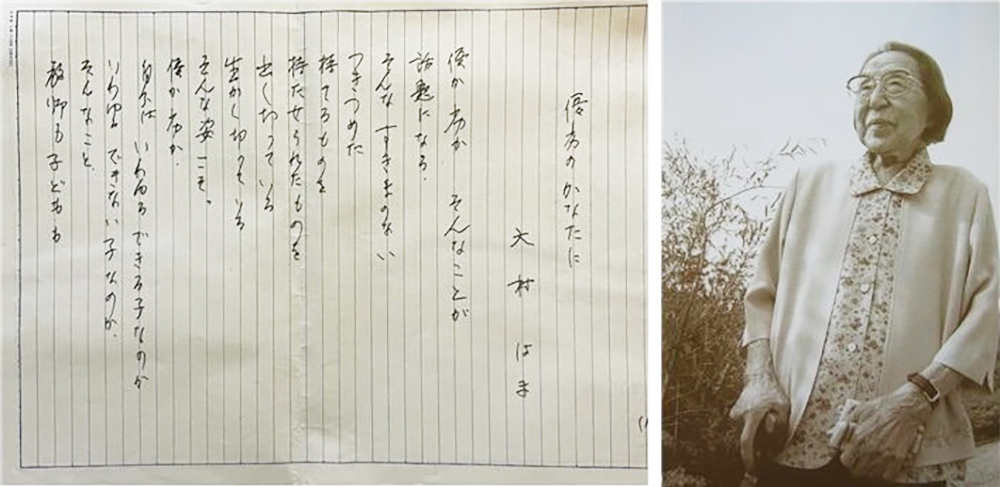 優劣のかなたに
大村はま
優か劣か そんなことが
話題になる、
そんな すきまのない
つきつめた
持てるものを
持たせられたものを
出し切っている
生かし切っている
そんな姿こそ。
優か劣か、
自分は いわゆるできる子なのか
いわゆるできない子なのか、
そんなこと、
教師も子どもも